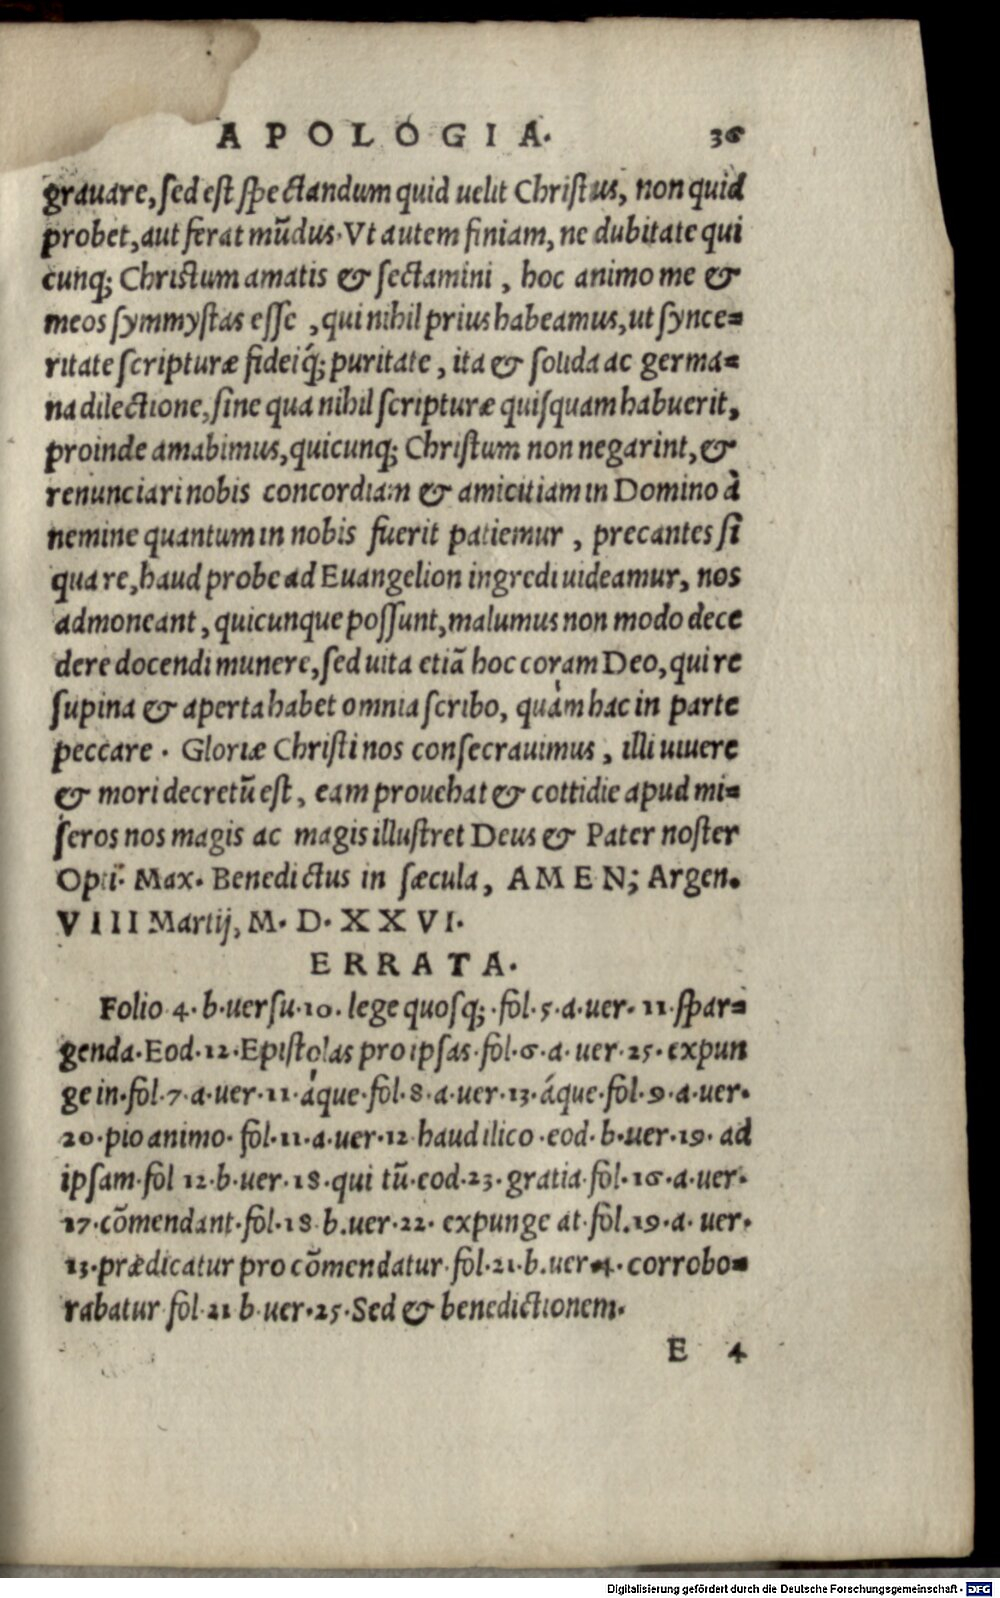 APOLOGIA. 36
grauare, sed est spectandum quid uelit Christus, non quid
probet, aut ferat mũdus. Vt autem finiam, ne dubitate qui
cunq; Christum amatis & sectamini, hoc animo me &
meos symmystas esse, qui nihil prius habeamus, ut synce=
ritate scripturæ fideiq́; puritate, ita & solida ac germa=
na dilectione, sine qua nihil scripturæ quisquam habuerit,
proinde amabimus, quicunq; Christum non negarint, &
renunciari nobis concordiam & amicitiam in Domino à
nemine quantum in nobis fuerit patiemur, precantes si
qua re, haud probe ad Euangelion ingredi uideamur, nos
admoneant, quicunque possunt, malumus non modo dece
dere docendi munere, sed uita etiã hoc coram Deo, qui re
supina & aperta habet omnia scribo, quàm hac in parte
peccare. Gloriæ Christi nos consecrauimus, illi uiuere
& mori decretũ est, eam prouehat & cottidie apud mi=
seros nos magis ac magis illustret Deus & Pater noster
Opti. Max. Benedictus in sæcula, AMEN; Argen.
VIII Martij, M. D. XXVI.
ERRATA.
Folio 4. b. uersu. 10. lege quosq;. fol. 5. a. uer. 11. spar=
genda. Eod. 12. Epistolas pro ipsas. fol. 6. a. uer. 25. expun
ge in. fol. 7. a. uer. 11. áque. fol. 8. a. uer. 13. áque. fol. 9. a. uer.
20. pio animo. fol. 11. a. uer. 12 haud ilico. eod. b. uer. 19. ad
ipsam. fol 12. b. uer. 18. qui tũ. eod. 23. gratia. fol. 16. a. uer.
17. cõmendant. fol. 18 b. uer. 22. expunge at. fol. 19. a. uer.
13. prædicatur pro cõmendatur. fol. 21. b. uer. 4. corrobo=
rabatur fol. 21 b. uer. 25. Sed & benedictionem.
E 4
Digitalisierung gefördert durch die Deutsche Forschungsgemeinschaft - DFG